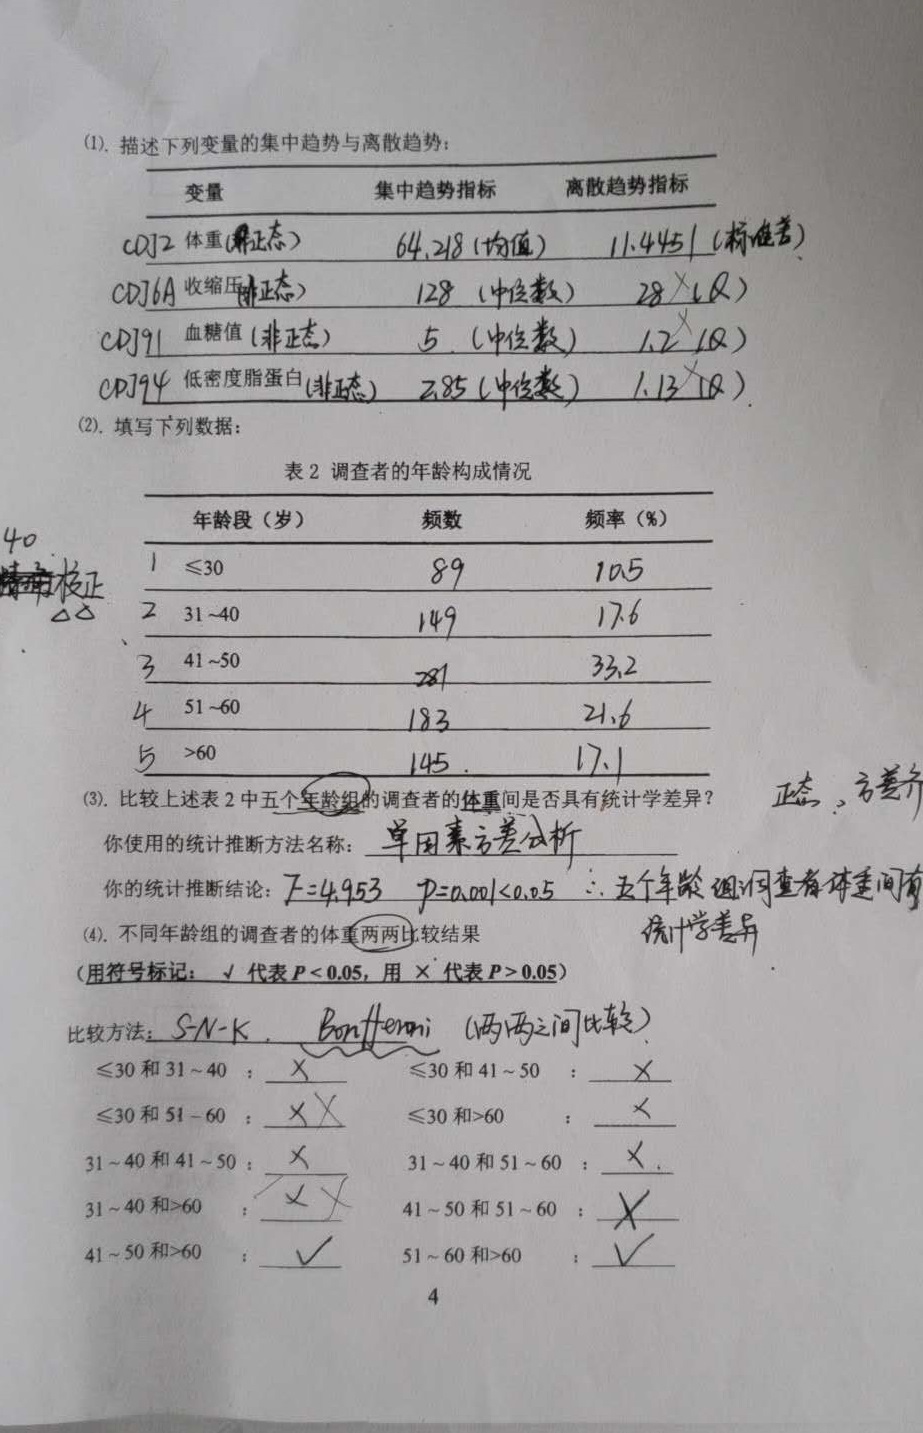 (1). 描述下列变量的集中趋势与离散趋势:
变量 集中趋势指标 离散趋势指标
CDJ2 体重(正态) 64.218 (均值) 11.4451 (标准差)
CDJ6A 收缩压(非正态) 128 (中位数) 28 × (Q)
CDJ91 血糖值 (非正态) 5 (中位数) 1.2 × (Q)
CDJ94 低密度脂蛋白 (非正态) 2.85 (中位数) 1.13 × (Q)
(2). 填写下列数据:
表 2 调查者的年龄构成情况
年龄段(岁) 频数 频率(%)
40
校正
1 ≤30 89 10.5
2 31~40 149 17.6
3 41~50 281 33.2
4 51~60 183 21.6
5 >60 145 17.1
(3). 比较上述表 2 中五个年龄组的调查者的体重间是否具有统计学差异?
正态、方差齐
你使用的统计推断方法名称: 单因素方差分析
你的统计推断结论: F=4.953 P=0.001<0.05 ∴五个年龄组调查者体重间有
统计学差异
(4). 不同年龄组的调查者的体重两两比较结果
(用符号标记: √ 代表 P < 0.05, 用 × 代表 P > 0.05)
比较方法: S-N-K . Bonfferoni (两两之间比较)
≤30 和 31~40 : × ≤30 和 41~50 : ×
≤30 和 51~60 : × × ≤30 和>60 : ×
31~40 和 41~50 : × 31~40 和 51~60 : ×
31~40 和>60 : × × 41~50 和 51~60 : ×
41~50 和>60 : √ 51~60 和>60 : √
4